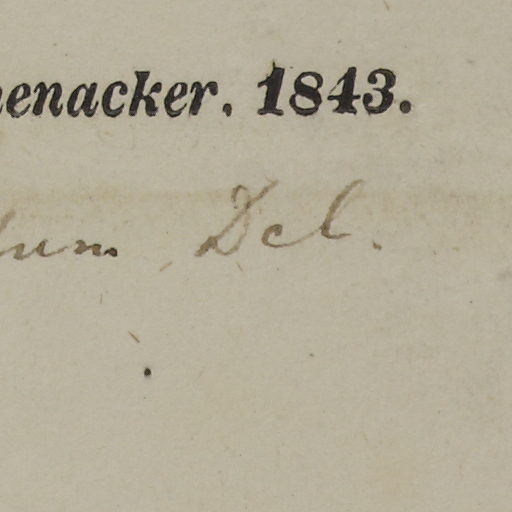 enacker. 1843.
um Del.